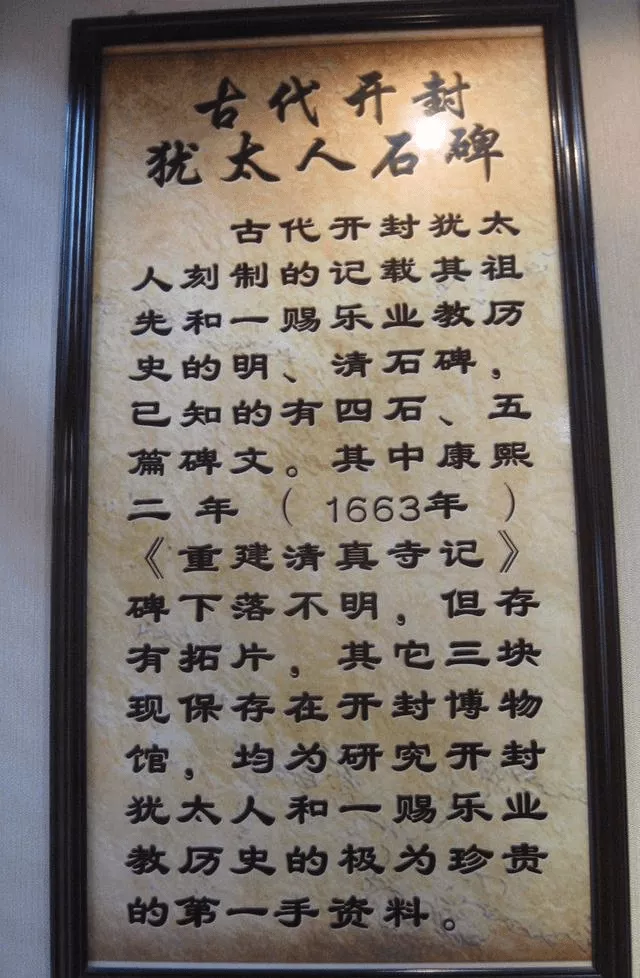 古代开封
犹太人石碑
古代开封犹太
人刻制的记载其祖
先和一赐乐业教历
史的明、清石碑，
已知的有四石、五
篇碑文。其中康熙
二年（1663年）
《重建清真寺记》
碑下落不明，但存
有拓片，其它三块
现保存在开封博物
馆，均为研究开封
犹太人和一赐乐业
教历史的极为珍贵
的第一手资料。